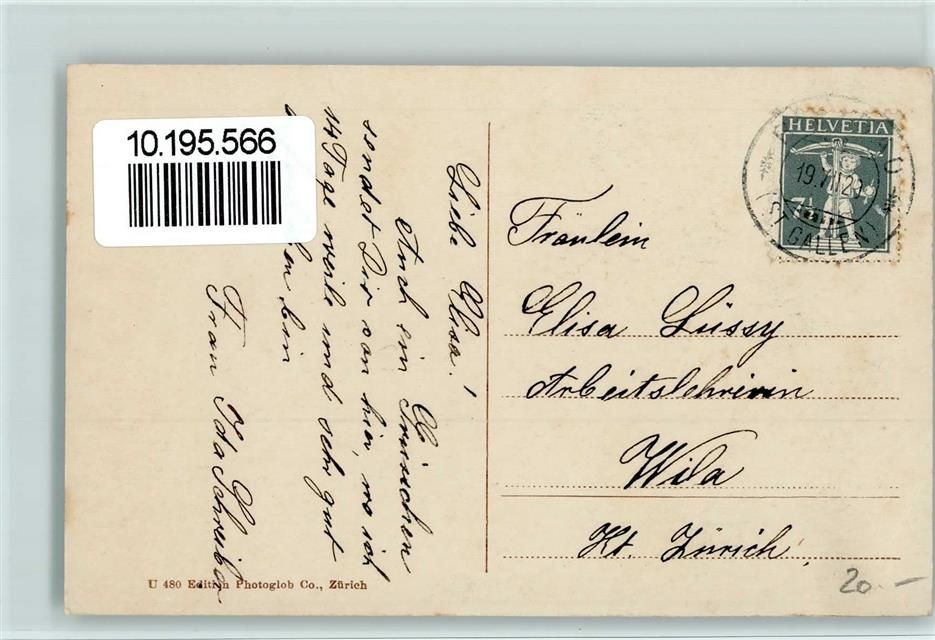 10.195.566
HELVETIA
19.VII.2
GALLEN)
Liebe Elisa!
Auch ein Grüsschen
sendet Dir von hier, wo ich
14 Tage weile und sehr gut
bin
Frau Ida
Fräulein
Elisa Lüssy
Arbeitslehrerin
Wila
Kt. Zürich,
U 480 Edition Photoglob Co., Zürich
20.-